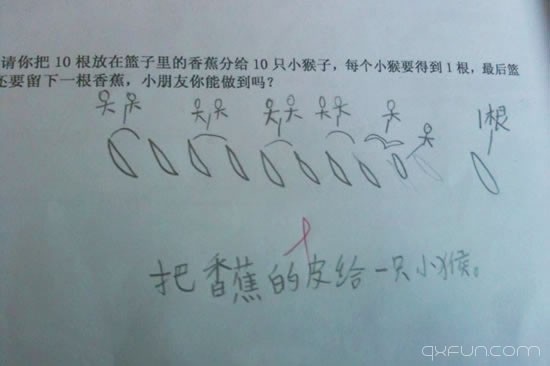 请你把 10 根放在篮子里的香蕉分给 10 只小猴子，每个小猴要得到 1 根，最后篮
还要留下一根香蕉，小朋友你能做到吗？
1根
把香蕉的皮给一只小猴。
qxfuncom